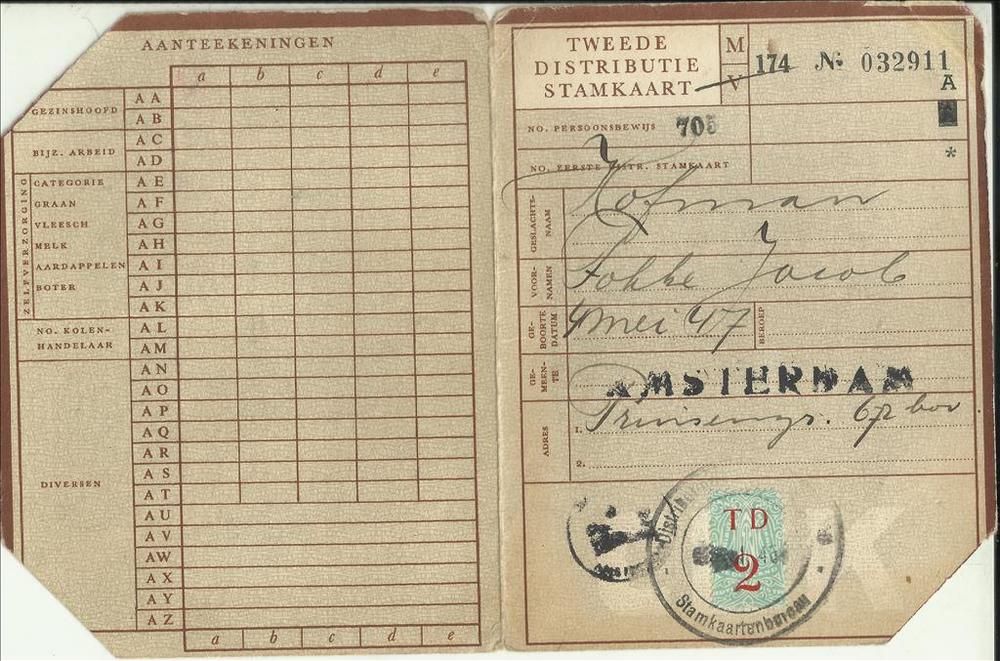 AANTEEKENINGEN
a b c d e
GEZINSHOOFD
A A
A B
BIJZ. ARBEID
A C
A D
ZELFVERZORGING
CATEGORIE A E
GRAAN A F
VLEESCH A G
MELK A H
AARDAPPELEN A I
BOTER A J
A K
NO. KOLEN-
HANDELAAR
A L
A M
A N
A O
A P
A Q
A R
DIVERSEN
A S
A T
A U
A V
A W
A X
A Y
A Z
a b c d e
TWEEDE
DISTRIBUTIE
STAMKAART
M
V
174 No 032911
A
NO. PERSOONSBEWIJS 705
*
NO. EERSTE DISTR. STAMKAART
GESLACHTS-
NAAM
Hofman
VOOR-
NAMEN
Fokke Jacob
GE-
BOORTE
DATUM
4 mei '47
BEROEP
GE-
MEEN-
TE
AMSTERDAM
ADRES
1. Prinsengr. 672 bov
2.
TD
2
Distribu
Stamkaartenbureau